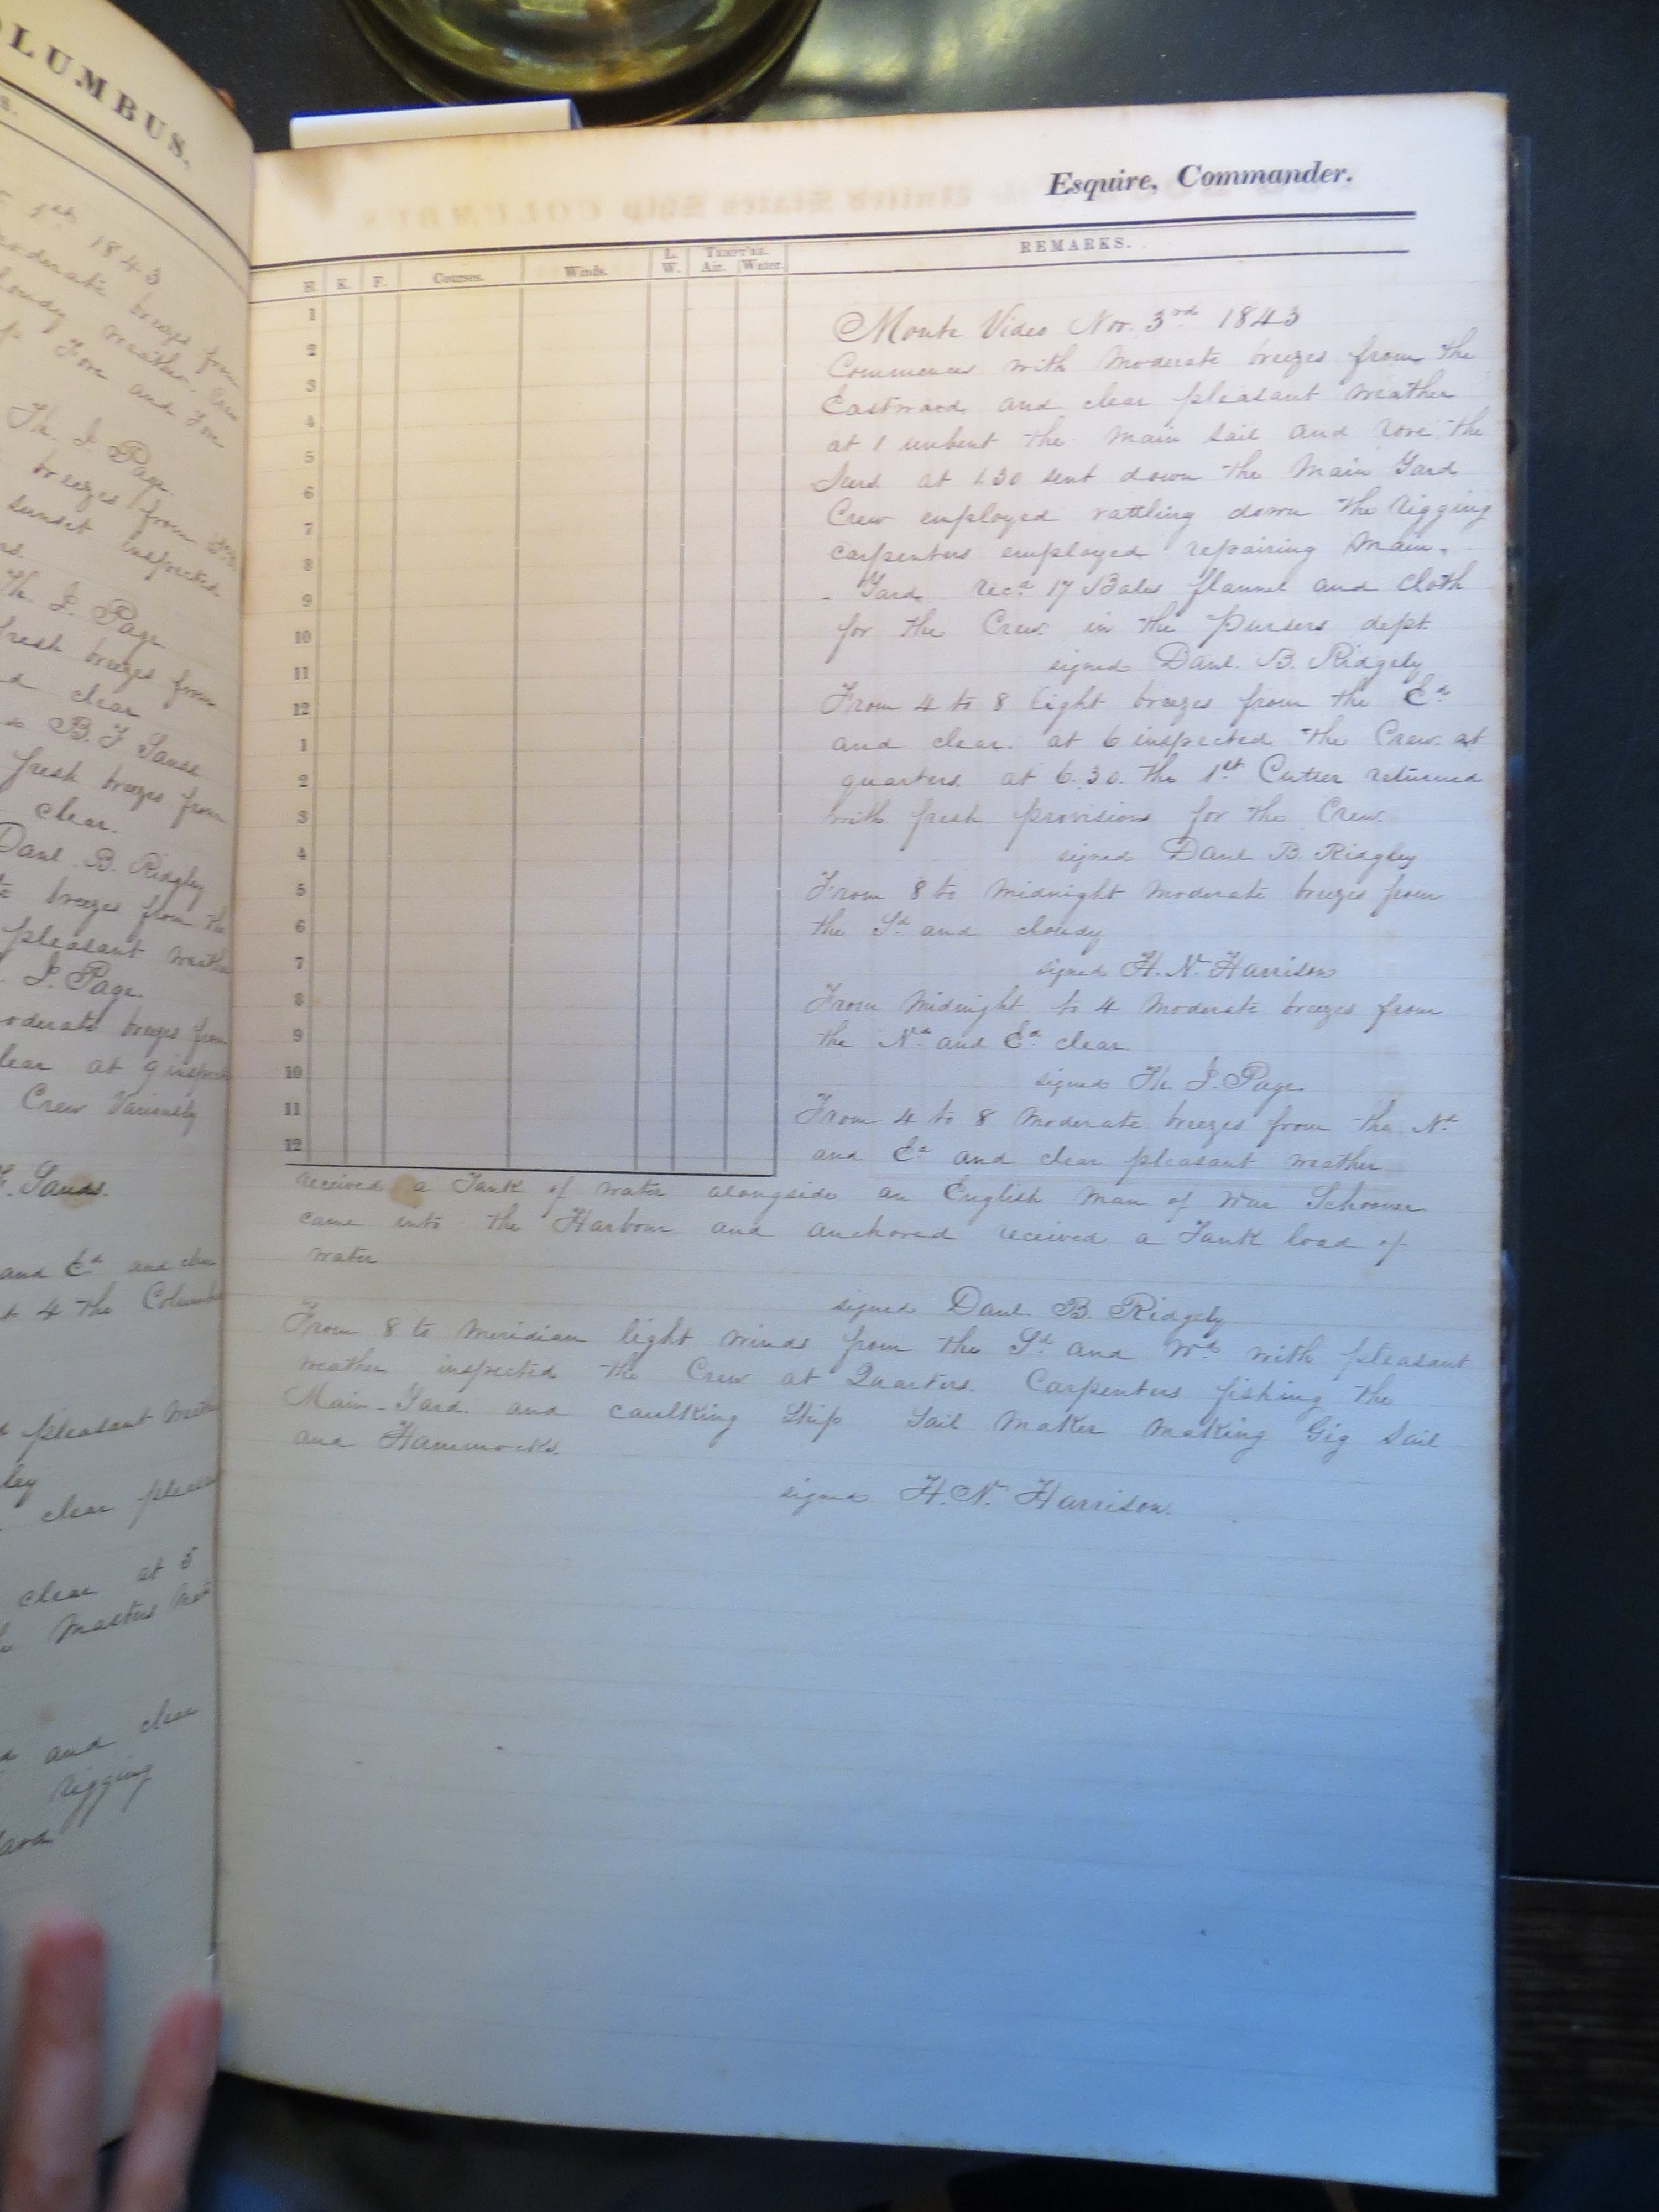 OLUMBUS,
S.
1st 1843
moderate breezes from
cloudy weather.
Fore and
Th. J. Page.
breezes from
sunset inspected
Th. J. Page
fresh breezes from
clear
B. F. Sands
fresh breezes from
clear.
Danl. B. Ridgley
breezes from the
pleasant weather
J. Page.
moderate breezes from
clear at 9 inspected
Crew Variously
F. Sands.
and Ed and clear
at 4 the Columbus
pleasant weather
ley
clear pleasant
clear at 5
Masters Mate
and clear
rigging
Esquire, Commander.
H. K. F. Courses. Winds. L. W. TEMPT'RE. Air. Water. REMARKS.
1
2
3
4
5
6
7
8
9
10
11
12
1
2
3
4
5
6
7
8
9
10
11
12
Monte Video Nov. 3rd 1843
Commences with moderate breezes from the
Eastward and clear pleasant weather
at 1 unbent the main sail and rove the
at 1.30 sent down the Main Yard
Crew employed rattling down the rigging
carpenters employed repairing Main-
- Yard recd 17 Bales flannel and cloth
for the Crew in the Pursers dept.
signed Danl. B. Ridgely
From 4 to 8 light breezes from the Ed
and clear. at 6 inspected the Crew at
quarters. at 6.30. the 1st Cutter returned
with fresh provisions for the Crew.
signed Danl B. Ridgley
From 8 to midnight moderate breezes from
the Sd and cloudy
signed H. N. Harrison
From Midnight to 4 moderate breezes from
the Nd and Ed clear
signed Th J. Page
From 4 to 8 moderate breezes from the Nd
and Ed and clear pleasant weather
received a Tank of water alongside an English man of war Schooner
came into the Harbour and anchored received a Tank load of
water
signed Danl B. Ridgely
From 8 to Meridian light winds from the Sd and Wd with pleasant
weather inspected the Crew at Quarters. Carpenters fishing the
Main-Yard and caulking Ship Sail Maker making Gig Sail
and Hammocks.
signed H. N. Harrison.